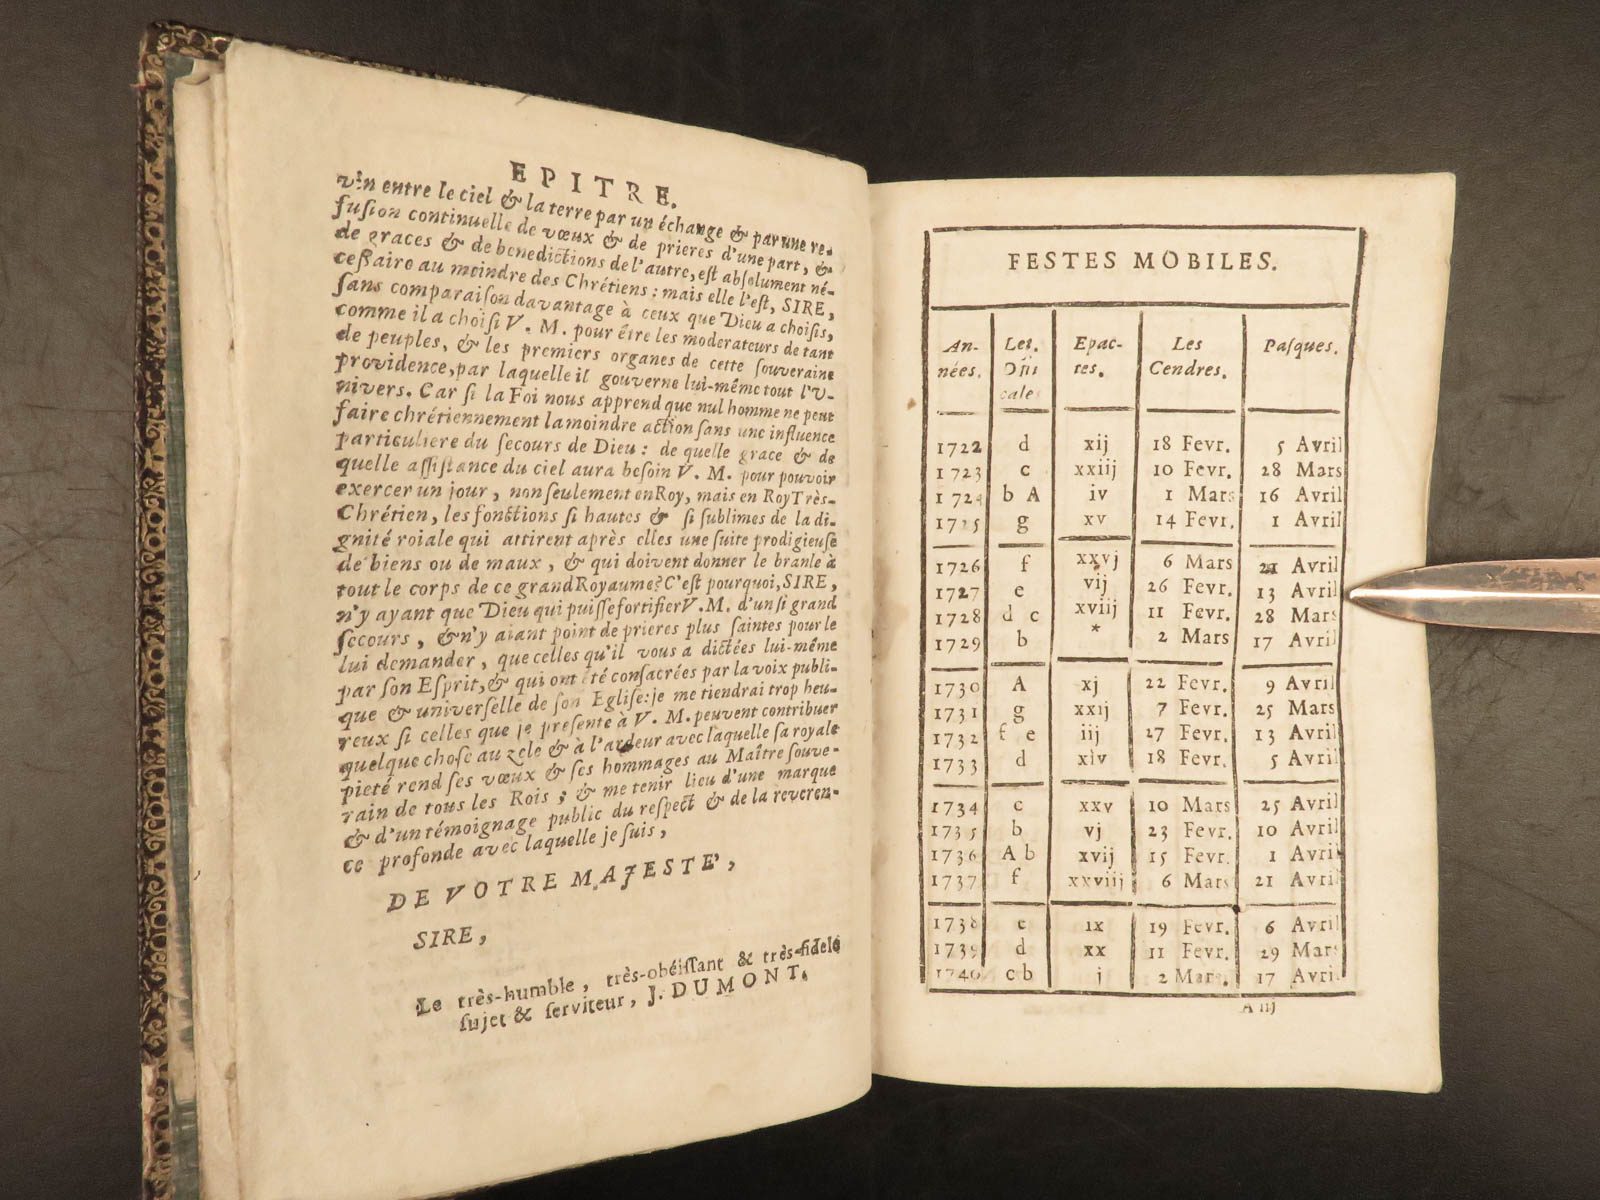 EPITRE.
vin entre le ciel & la terre par un échange & par une re-
fusion continuelle de vœux & de prieres d'une part, &
de graces & de benedictions de l'autre, est absolument né-
cessaire au moindre des Chrétiens : mais elle l'est, SIRE,
sans comparaison davantage à ceux que Dieu a choisis,
comme il a choisi V. M. pour être les moderateurs de tant
de peuples, & les premiers organes de cette souveraine
providence, par laquelle il gouverne lui-même tout l'U-
nivers. Car si la Foi nous apprend que nul homme ne peut
faire chrétiennement la moindre action sans une influence
particuliere du secours de Dieu : de quelle grace & de
quelle assistance du ciel aura besoin V. M. pour pouvoir
exercer un jour, non seulement en Roy, mais en Roy Très-
Chrétien, les fonctions si hautes & si sublimes de la di-
gnité roiale qui attirent après elles une suite prodigieuse
de biens ou de maux, & qui doivent donner le branle à
tout le corps de ce grand Royaume? C'est pourquoi, SIRE,
n'y ayant que Dieu qui puisse fortifier V. M. d'un si grand
secours, & n'y aiant point de prieres plus saintes pour le
lui demander, que celles qu'il vous a dictées lui-même
par son Esprit, & qui ont été consacrées par la voix publi-
que & universelle de son Eglise : je me tiendrai trop heu-
reux si celles que je presente à V. M. peuvent contribuer
quelque chose au zele & à l'ardeur avec laquelle sa royale
pieté rend ses vœux & ses hommages au Maître souve-
rain de tous les Rois ; & me tenir lieu d'une marque
& d'un témoignage public du respect & de la reveren-
ce profonde avec laquelle je suis,
DE VOTRE MAJESTE',
SIRE,
Le très-humble, très-obéissant & très-fidele
sujet & serviteur, J. DUMONT.
FESTES MOBILES.
An- Let. Epac- Les Pasques.
nées. tes. Cendres.
cales
1722 d xij 18 Fevr. 5 Avril
1723 c xxiij 10 Fevr. 28 Mars
1724 b A iv 1 Mars 16 Avril
1725 g xv 14 Fevr. 1 Avril
1726 f xxvj 6 Mars 21 Avril
1727 e vij 26 Fevr. 13 Avril
1728 d c xviij 11 Fevr. 28 Mars
1729 b * 2 Mars 17 Avril
1730 A xj 22 Fevr. 9 Avril
1731 g xxij 7 Fevr. 25 Mars
1732 f e iij 27 Fevr. 13 Avril
1733 d xiv 18 Fevr. 5 Avril
1734 c xxv 10 Mars 25 Avril
1735 b vj 23 Fevr. 10 Avril
1736 A b xvij 15 Fevr. 1 Avril
1737 f xxviij 6 Mars 21 Avril
1738 e ix 19 Fevr. 6 Avril
1739 d xx 11 Fevr. 29 Mars
1740 c b j 2 Mars. 17 Avril
A iij